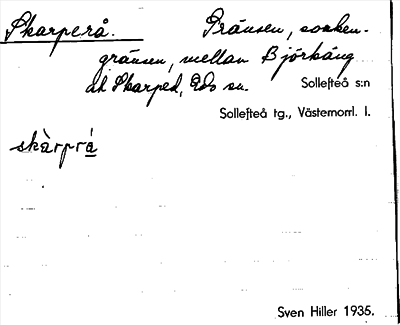 Skarperå. Gränsen, socken-
gränsen, mellan Björkäng
och Skarped, Eds sn. Sollefteå s:n
Sollefteå tg., Västernorrl. l.
skàrprǻ
Sven Hiller 1935.